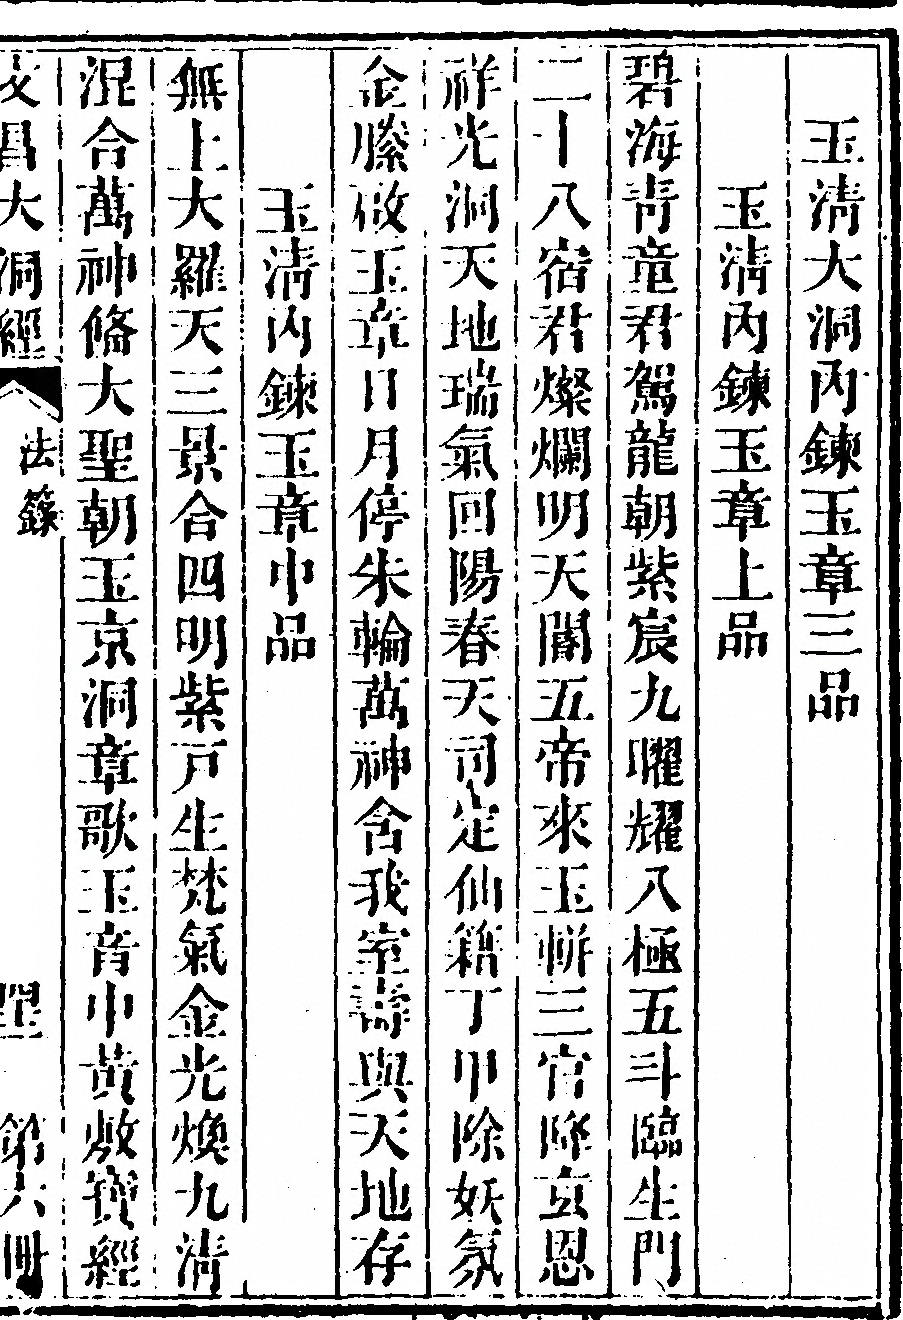 玉清大洞內鍊玉章三品
玉清內鍊玉章上品
碧海青童君駕龍朝紫宸九曜耀八極五斗臨生門
二十八宿君燦爛明天閽五帝來玉軿三官降玄恩
祥光洞天地瑞氣回陽春天司定仙籍丁甲除妖氛
金縢啟玉章日月停朱輪萬神含我室壽與天地存
玉清內鍊玉章中品
無上大羅天三景合四明紫戸生梵氣金光煥九清
混合萬神條大聖朝玉京洞章歌玉音中黃敷寶經
文昌大洞經
法籙
第六冊